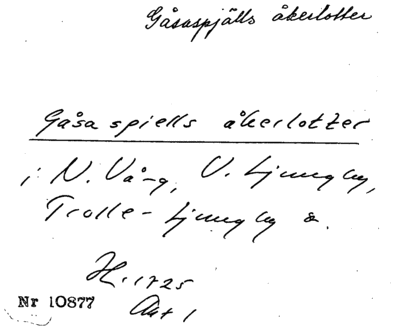 Gåsaspjälls åkerlotter
Gåsa spiells åkerlotter
i N. Vång, V. Ljungby,
Trolle-Ljungby &.
H. 1725
Akt 1
Nr 10877